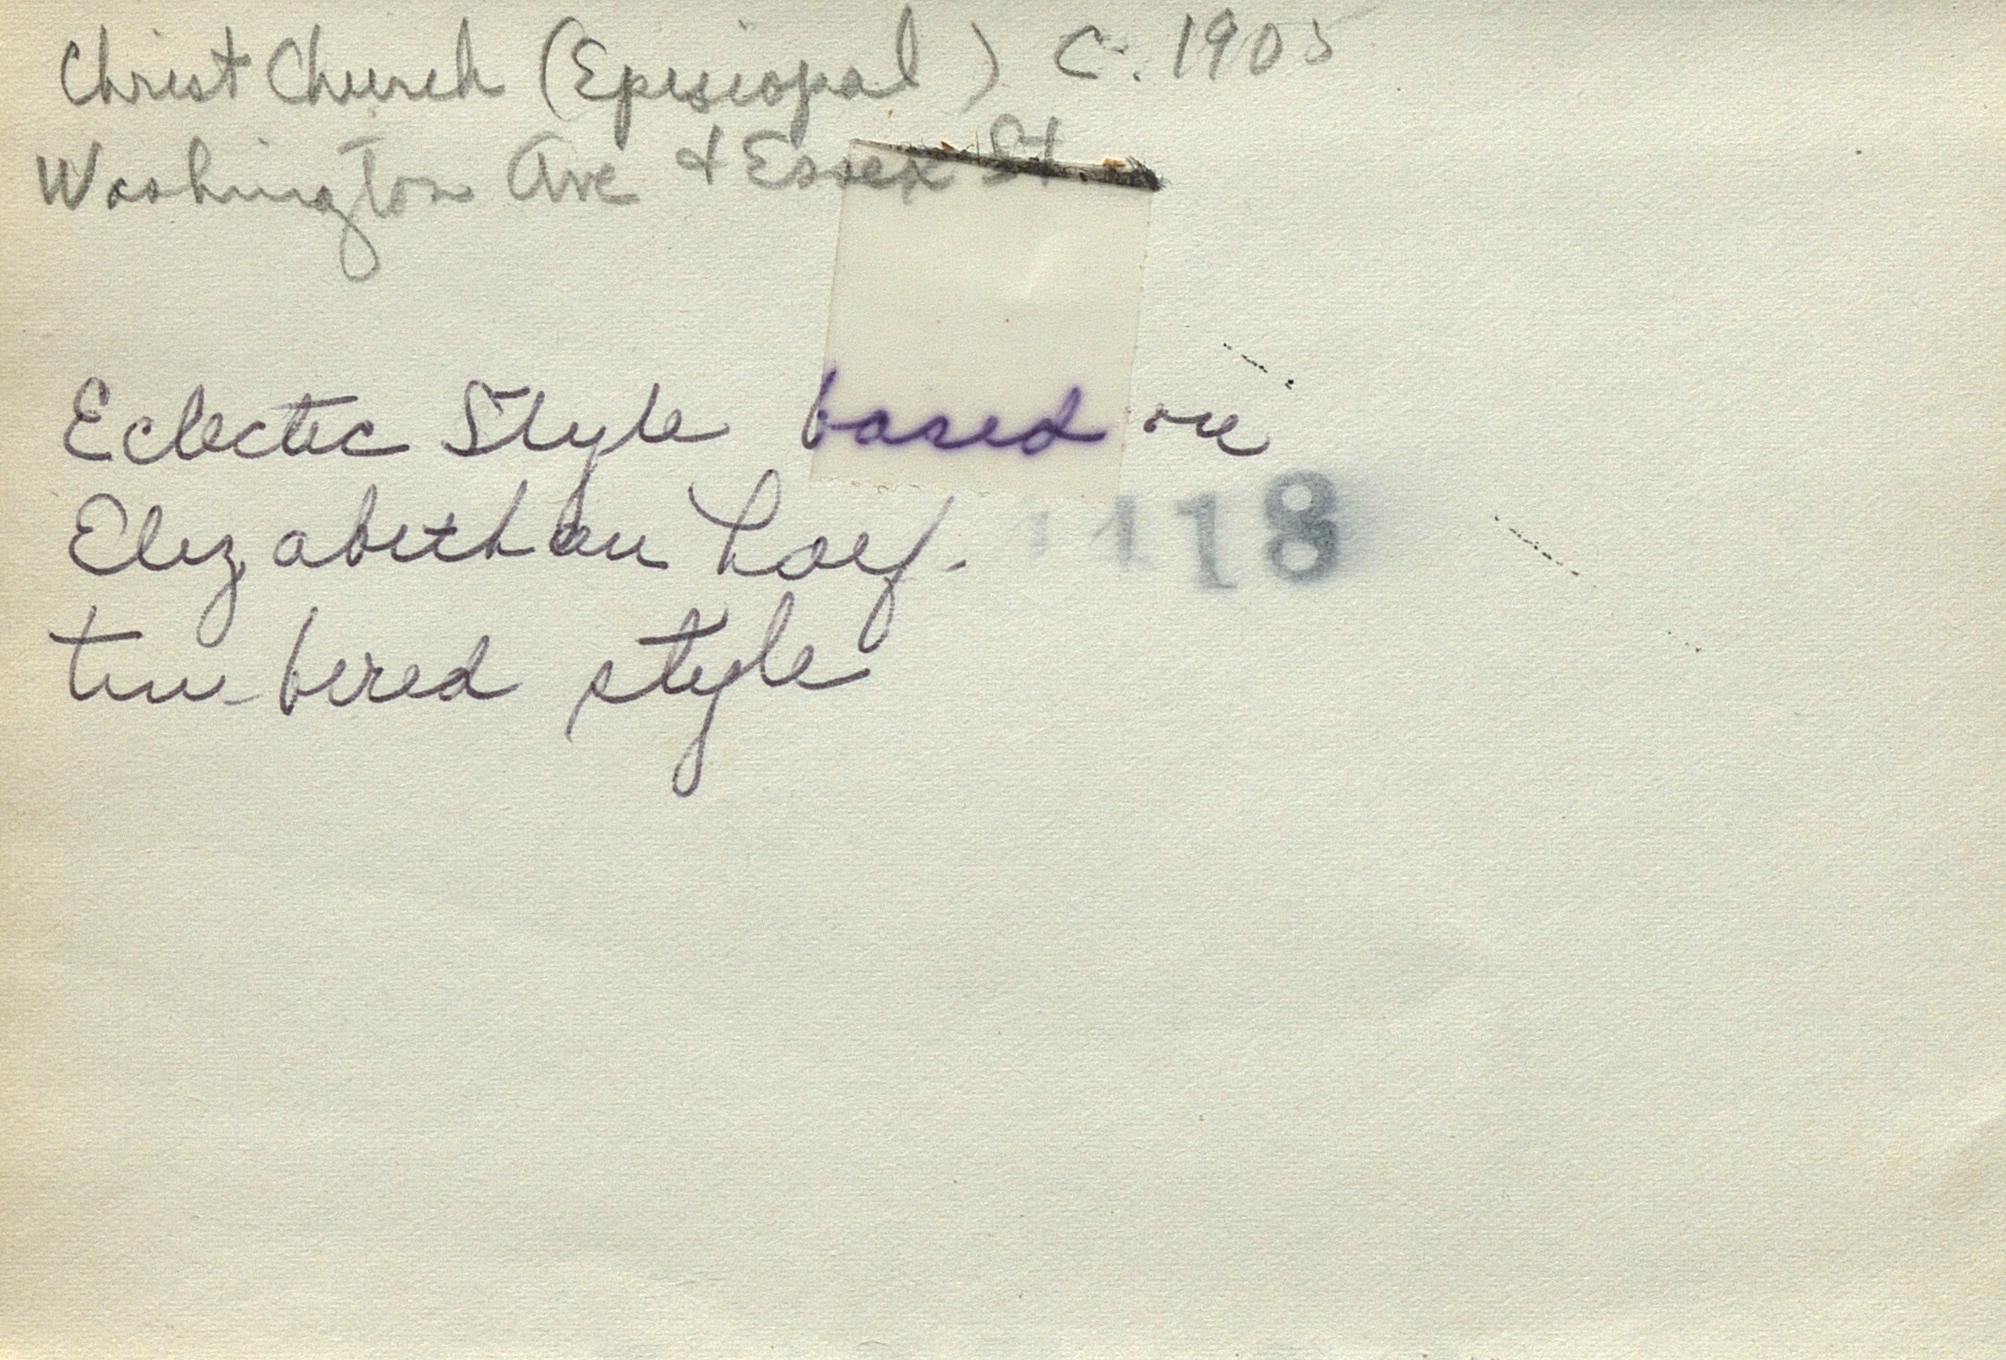 Christ Church (Episcopal) C. 1905
Washington Ave & Essex St.
Eclectic Style based on
Elizabethan half-
118
timbered style